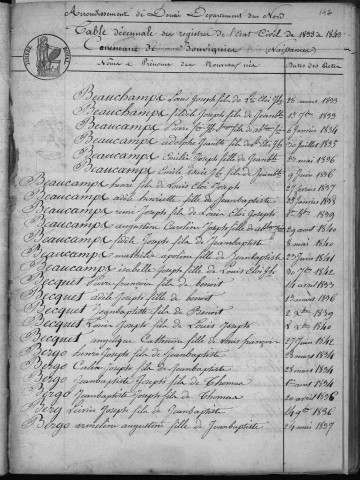 Arrondissement de Douai Departement du Nord
Table décennale des registres de l'état Civil de 1833 à 1842
Commune de Bouvignies Naissances
Noms & Prénoms des Nouveaux nés Dates des Actes
Beauchamps Louis Joseph fils de 26 mars 1833
Beaucamps fidéle Joseph fils de Jeanbte 1833
Beaucamps 6 fevrier 1834
Beaucamps adolphe fils de 20 Juillet 1835
Beaucamps Emilie Joseph fille de Jeanbte 30 mai 1836
Beaucamps fils de 9 Juin 1836
Beaucamps henri fils de Louis Eloi Joseph 27 fevrier 1837
Beaucamps adele henriette fille de Jeanbaptiste 23 fevrier 1838
Beaucamps remi Joseph fils de Louis Eloi Joseph 1839
Beaucamps augustine Caroline Joseph fille de 29 avril 1840
Beaucamps fidèle Joseph fils de Jeanbaptiste 8 mai 1840
Beaucamps mathilde apoline fille de Jeanbaptiste 22 Juin 1841
Beaucamps isabelle Joseph fille de Louis Eloi 30 7bre 1842
Becquet Pierre françois fils de benoit 14 avril 1833
Becquet adèle Joseph fille de benoit 13 mars 1836
Becquet Jeanbaptiste fils de Benoit 2 1839
Becquet Louis Joseph fils de Louis Joseph 8 1840
Becquet angelique Catherine fille de Louis françois 27 Juin 1842
Bergo henri Joseph fils de Jeanbaptiste 28 mars 1834
Bergo Joseph fils de Jeanbaptiste 28 mars 1834
Bergo Jeanbaptiste Joseph fils de Thomas 1er avril 1834
Bergo Jeanbaptiste Joseph fils de Thomas 20 avril 1836
Berg Joseph fils de Jeanbaptiste 4 9bre 1836
Bergo armeline augustine fille de Jeanbaptiste 24 mai 1837